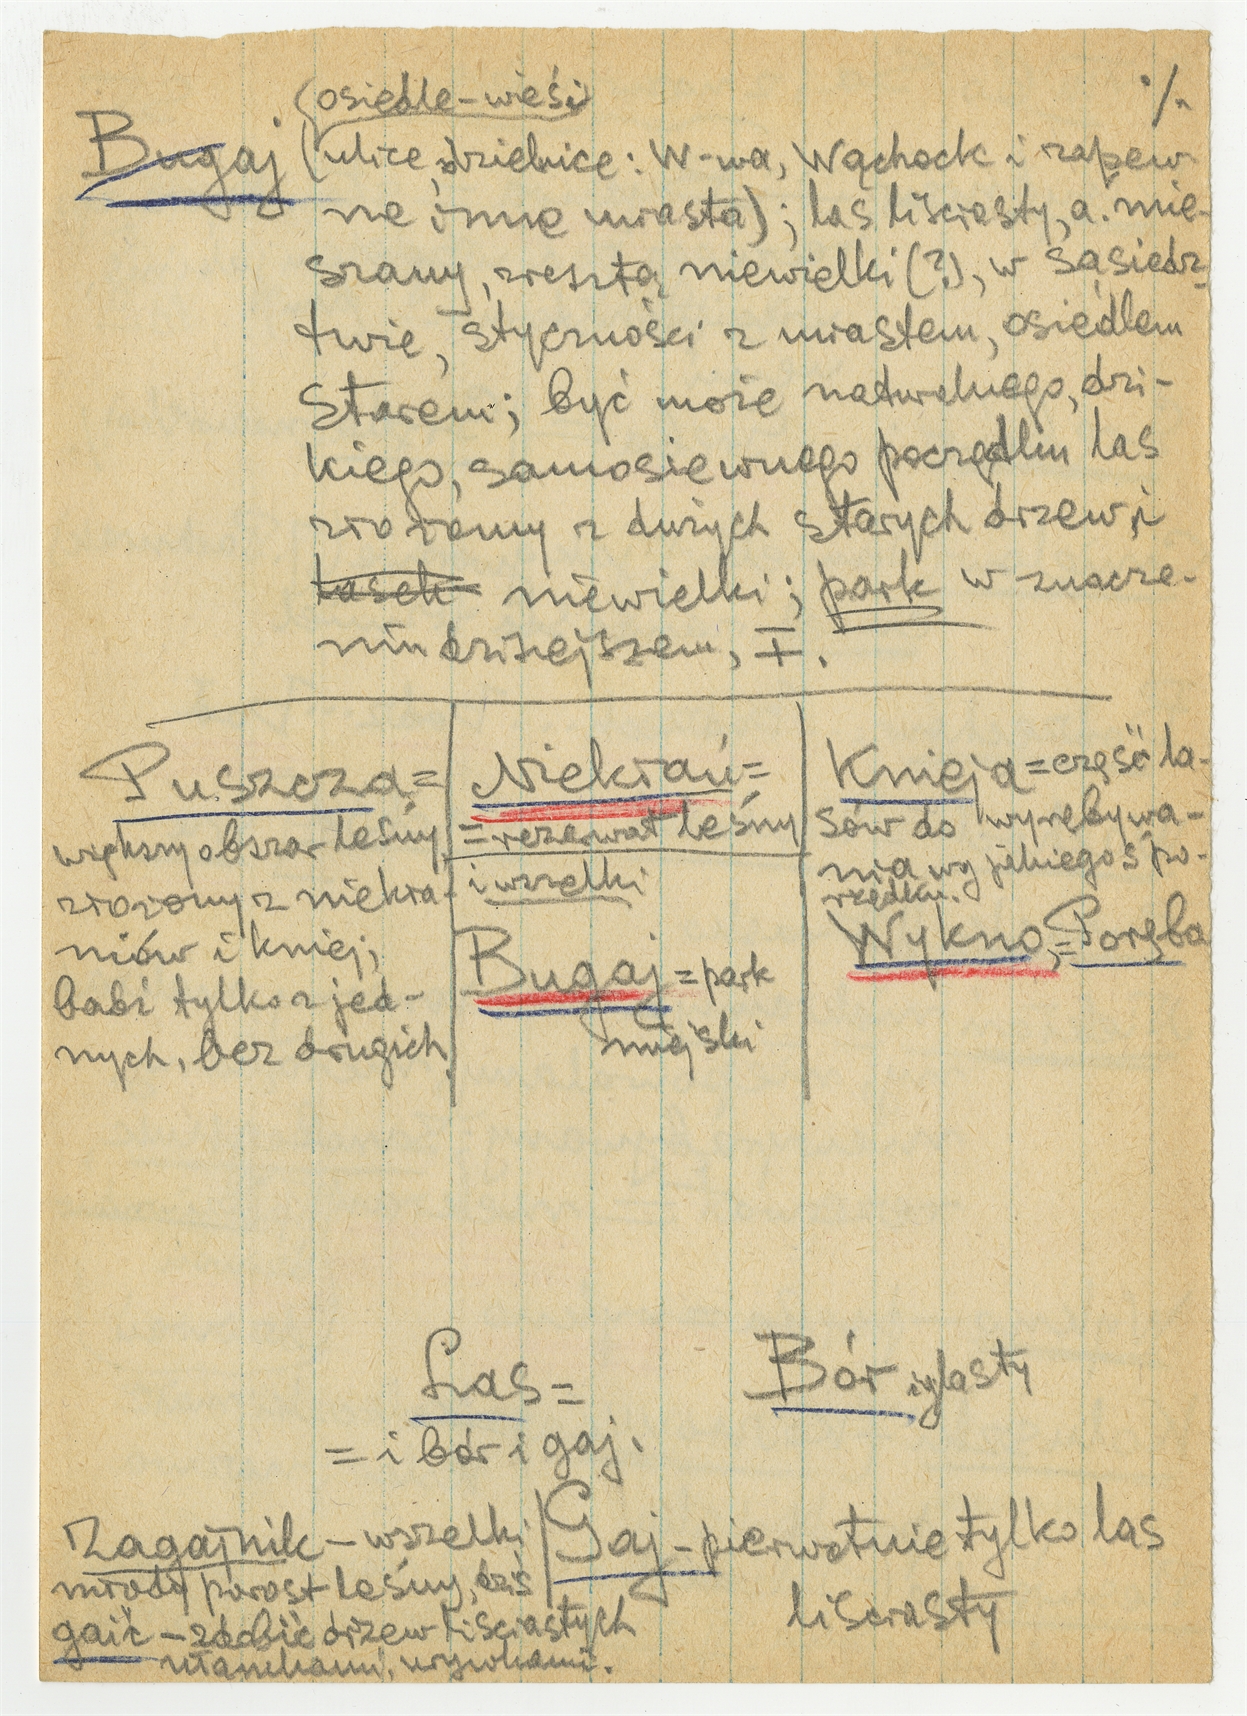 (osiedle-wieści)
·/.
Bugaj (ulice, dzielnice: W-wa, Wąchock i zapew-
ne inne miasta); las liściasty, a. mie-
szany, zresztą niewielki (?), w sąsiedz-
twie, styczności z miastem, osiedlem
starem; być może naturalnego, dzi-
kiego, samosiewnego porządku las
złożony z dużych starych drzew, i
lasek niewielki; park w znacze-
niu dzisiejszem, I.
Puszcza =
większy obszar leśny
złożony z niekła-
niów i kniej;
bądź tylko z jed-
nych, bez drugich
Niekłań =
= rezerwat leśny
i wszelki
Bugaj = park
miejski
Knieja = część la-
sów do wyrębywa-
nia wg jakiegoś po-
rządku.
Wykno, = Poręba
Las =
= i bór i gaj.
Bór iglasty
Zagajnik - wszelki
młody porost leśny, dziś
gaić - zdobić drzew liściastych
Gaj - pierwotnie tylko las
liściasty